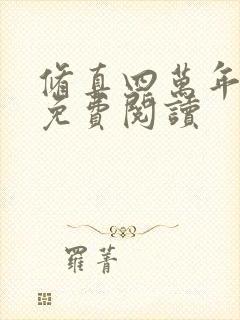 脩真四萬年
免費閱讀
羅菁